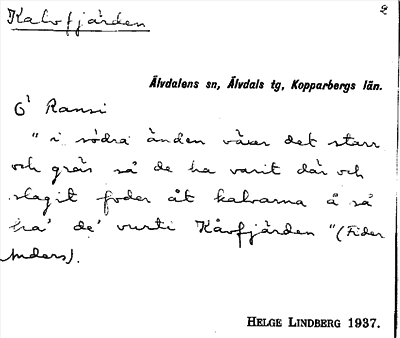 Kalvfjärden
2
Älvdalens sn, Älvdals tg, Kopparbergs län.
6' Ransi
"i södra änden växer det starr
och gräs så de ha varit där och
slagit foder åt kalvarna å så
ha' de' vurti Kåvfjärden" (Fider
Anders).
HELGE LINDBERG 1937.